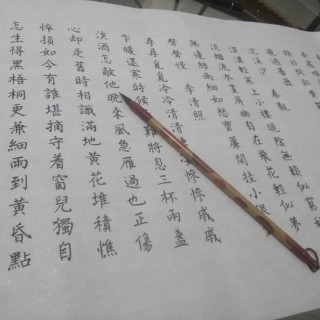 漠漠輕寒上小樓曉陰無賴似窮
淡煙流水畫屏幽自在飛花輕似夢
無邊絲雨細如愁寶簾閒挂小
聲聲慢 李清照
尋尋覓覓冷冷清清慘慘戚戚
乍暖還寒時候難將息三杯兩盞
淡酒怎敵他晚來風急雁過也正傷
心卻是舊時相識滿地黃花堆積憔
悴損如今有誰堪摘守着窗兒獨自
怎生得黑梧桐更兼細雨到黃昏點